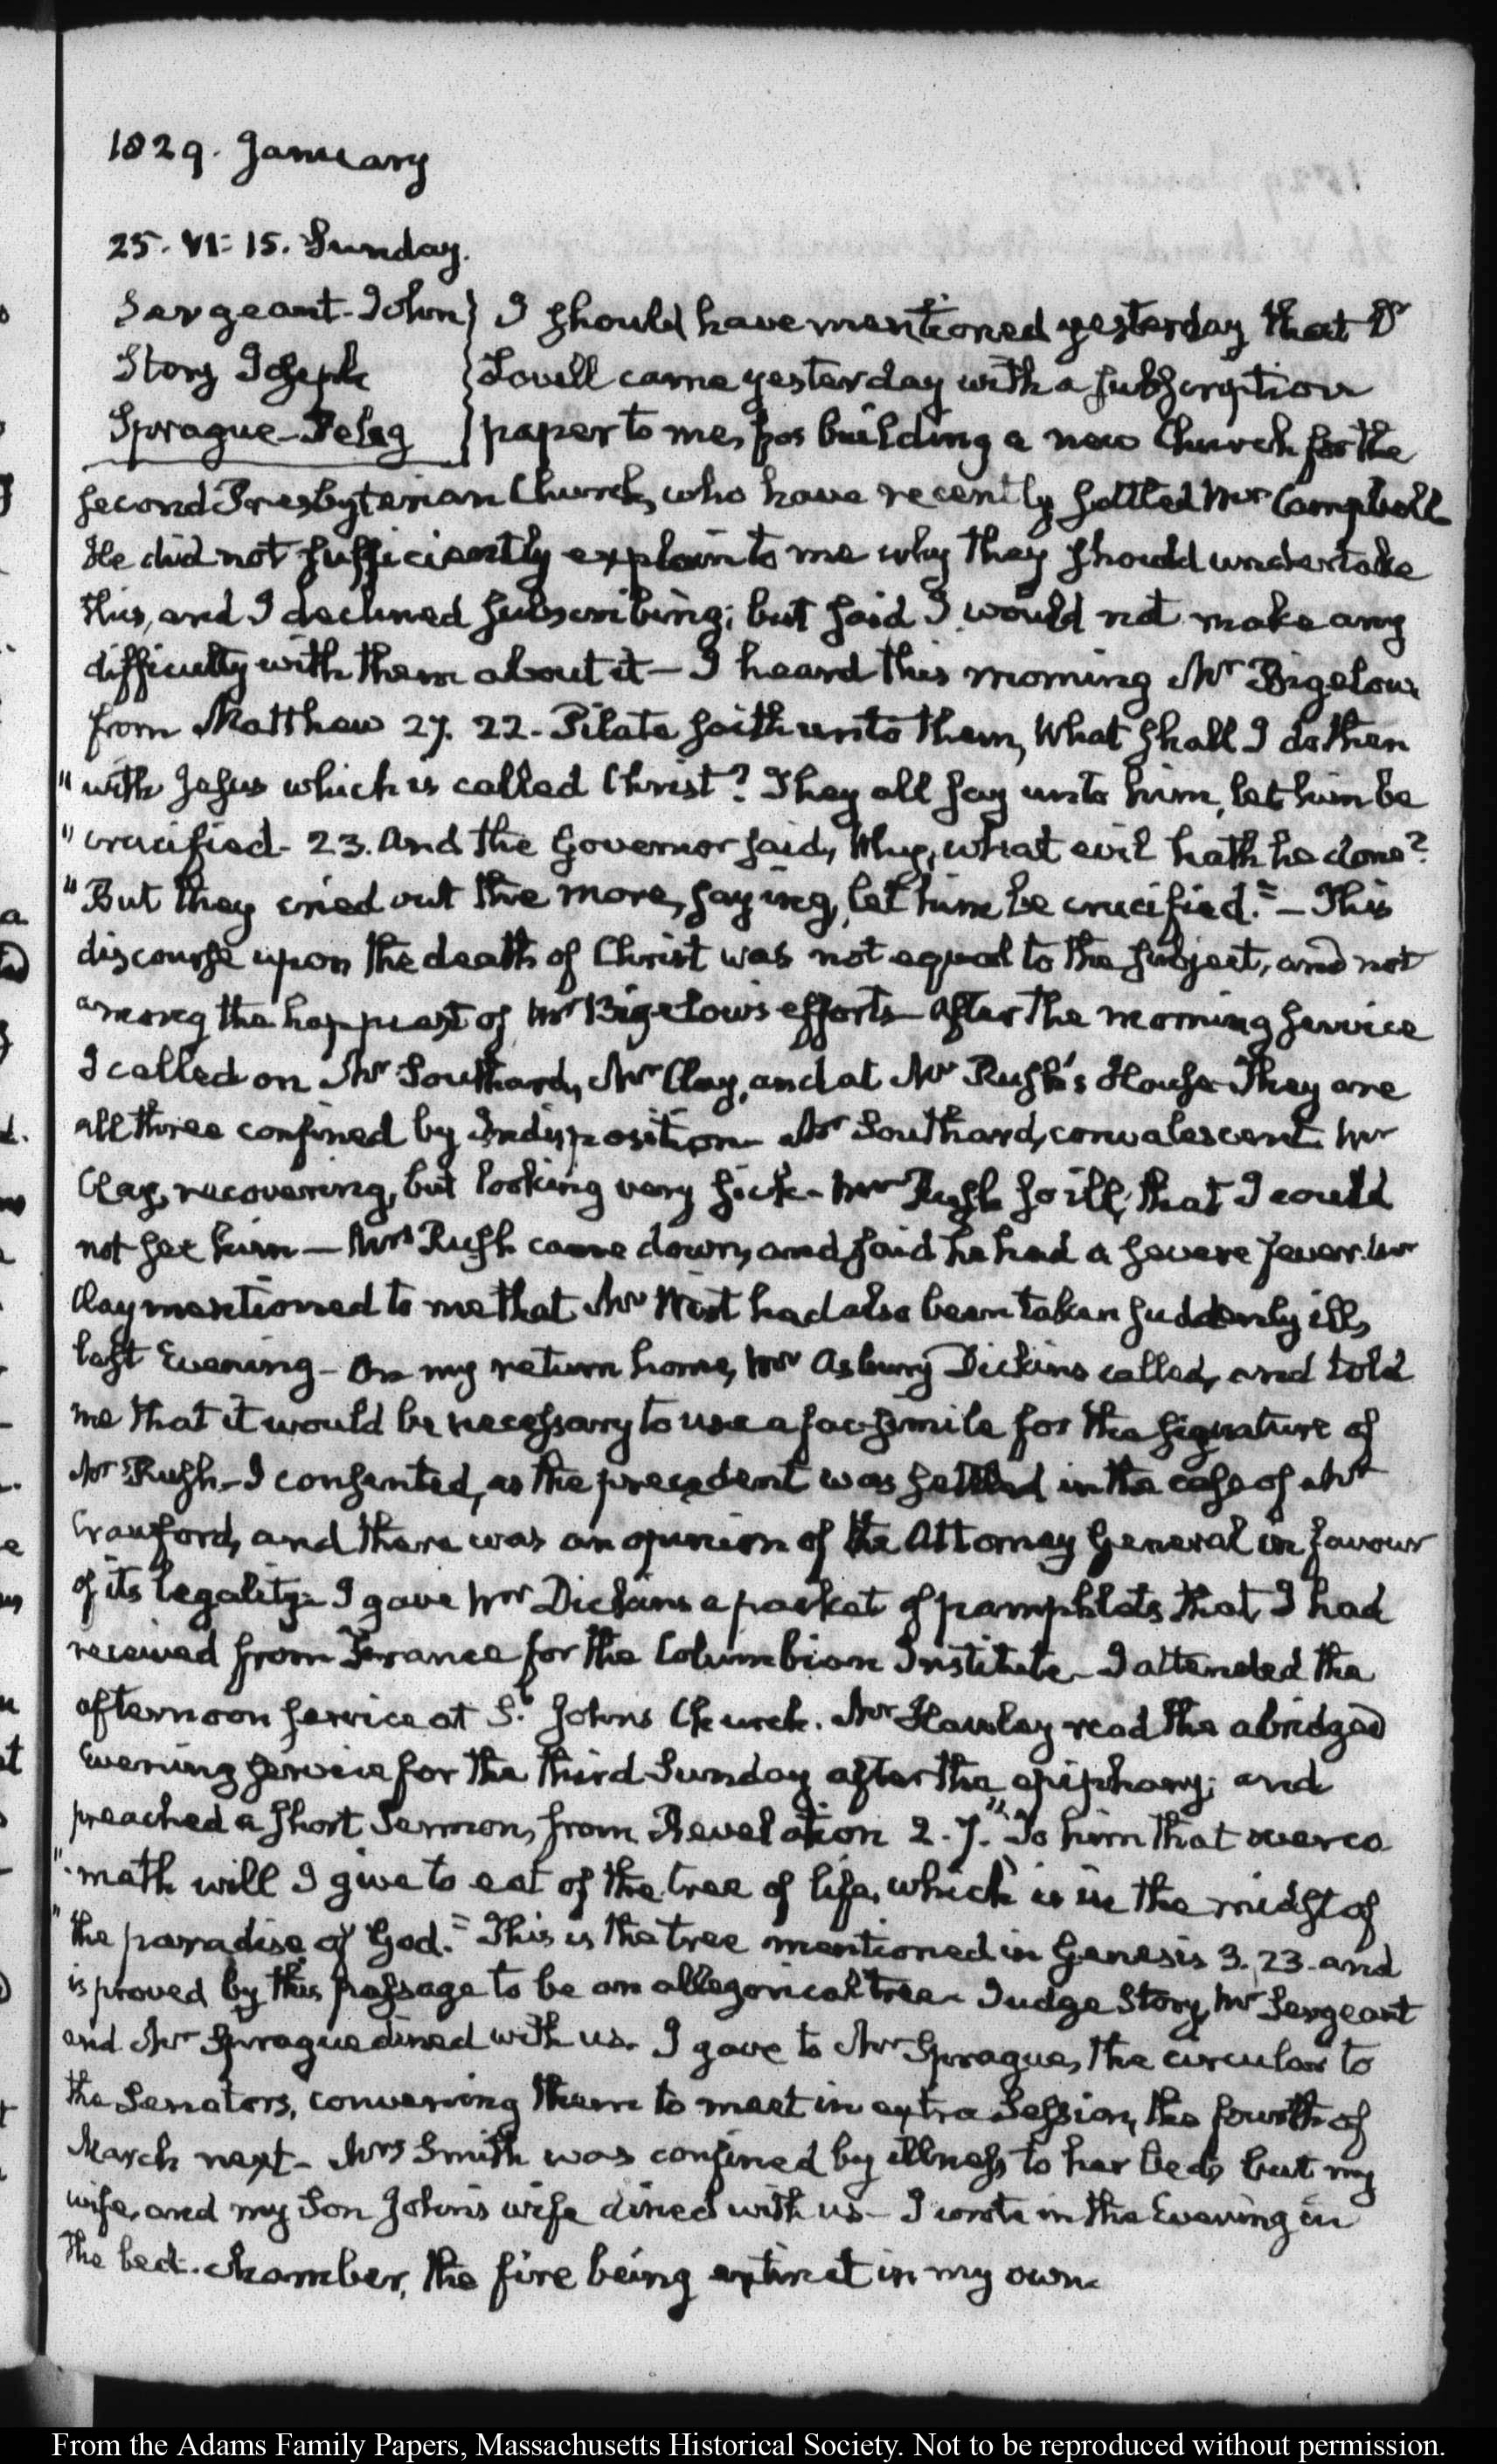 1829. January
25. VI: 15. Sunday.
Sergeant-John } I should have mentioned yesterday that Dr
Story Joseph } Lovell came yesterday with a subscription
Sprague-Peleg } paper to me, for building a new Church for the
second Presbyterian Church, who have recently settled Mr Campbell
He did not sufficiently explain to me why they should undertake
this, and I declined subscribing; but said I would not make any
difficulty with them about it— I heard this morning Mr Bigelow
from Matthew 27. 22- Pilate saith unto them, What shall I do then
"with Jesus which is called Christ? They all say unto him, let him be
"crucified- 23. And the Governor said, Why, what evil hath he done?
"But they cried out the more, saying, let him be crucified."— This
discourse upon the death of Christ was not equal to the subject, and not
among the happiest of Mr Bigelow's efforts— After the morning service
I called on Mr Southard, Mr Clay, and at Mr Rush's House— They are
all three confined by Indisposition— Mr Southard, convalescent Mr
Clay, recovering, but looking very sick— Mr Rush so ill, that I could
not see him— Mrs Rush came down, and said he had a severe fever. Mr
Clay mentioned to me that Mr Wirt had also been taken suddenly ill,
last Evening— On my return home, Mr Asbury Dickins called, and told
me that it would be necessary to use a fac-simile for the signature of
Mr Rush— I consented, as the precedent was settled in the case of Mr
Crawford, and there was an opinion of the Attorney General in favour
of its legality— I gave Mr Dickins a packet of pamphlets that I had
received from France for the Columbian Institute— I attended the
afternoon service at St Johns Church. Mr Hawley read the abridged
Evening service for the third Sunday after the epiphany; and
preached a short Sermon, from Revelation 2. 7. "To him that overco
"meth will I give to eat of the tree of life, which is in the midst of
"the paradise of God." This is the tree mentioned in Genesis 3. 23. and
is proved by this passage to be an allegorical tree— Judge Story, Mr Sergeant
and Mr Sprague dined with us. I gave to Mr Sprague, the circular to
the Senators, convening them to meet in extra Session, the fourth of
March next— Mrs Smith was confined by illness to her bed, but my
wife, and my Son John's wife dined with us— I wrote in the Evening in
the bed-chamber, the fire being extinct in my own.
From the Adams Family Papers, Massachusetts Historical Society. Not to be reproduced without permission.